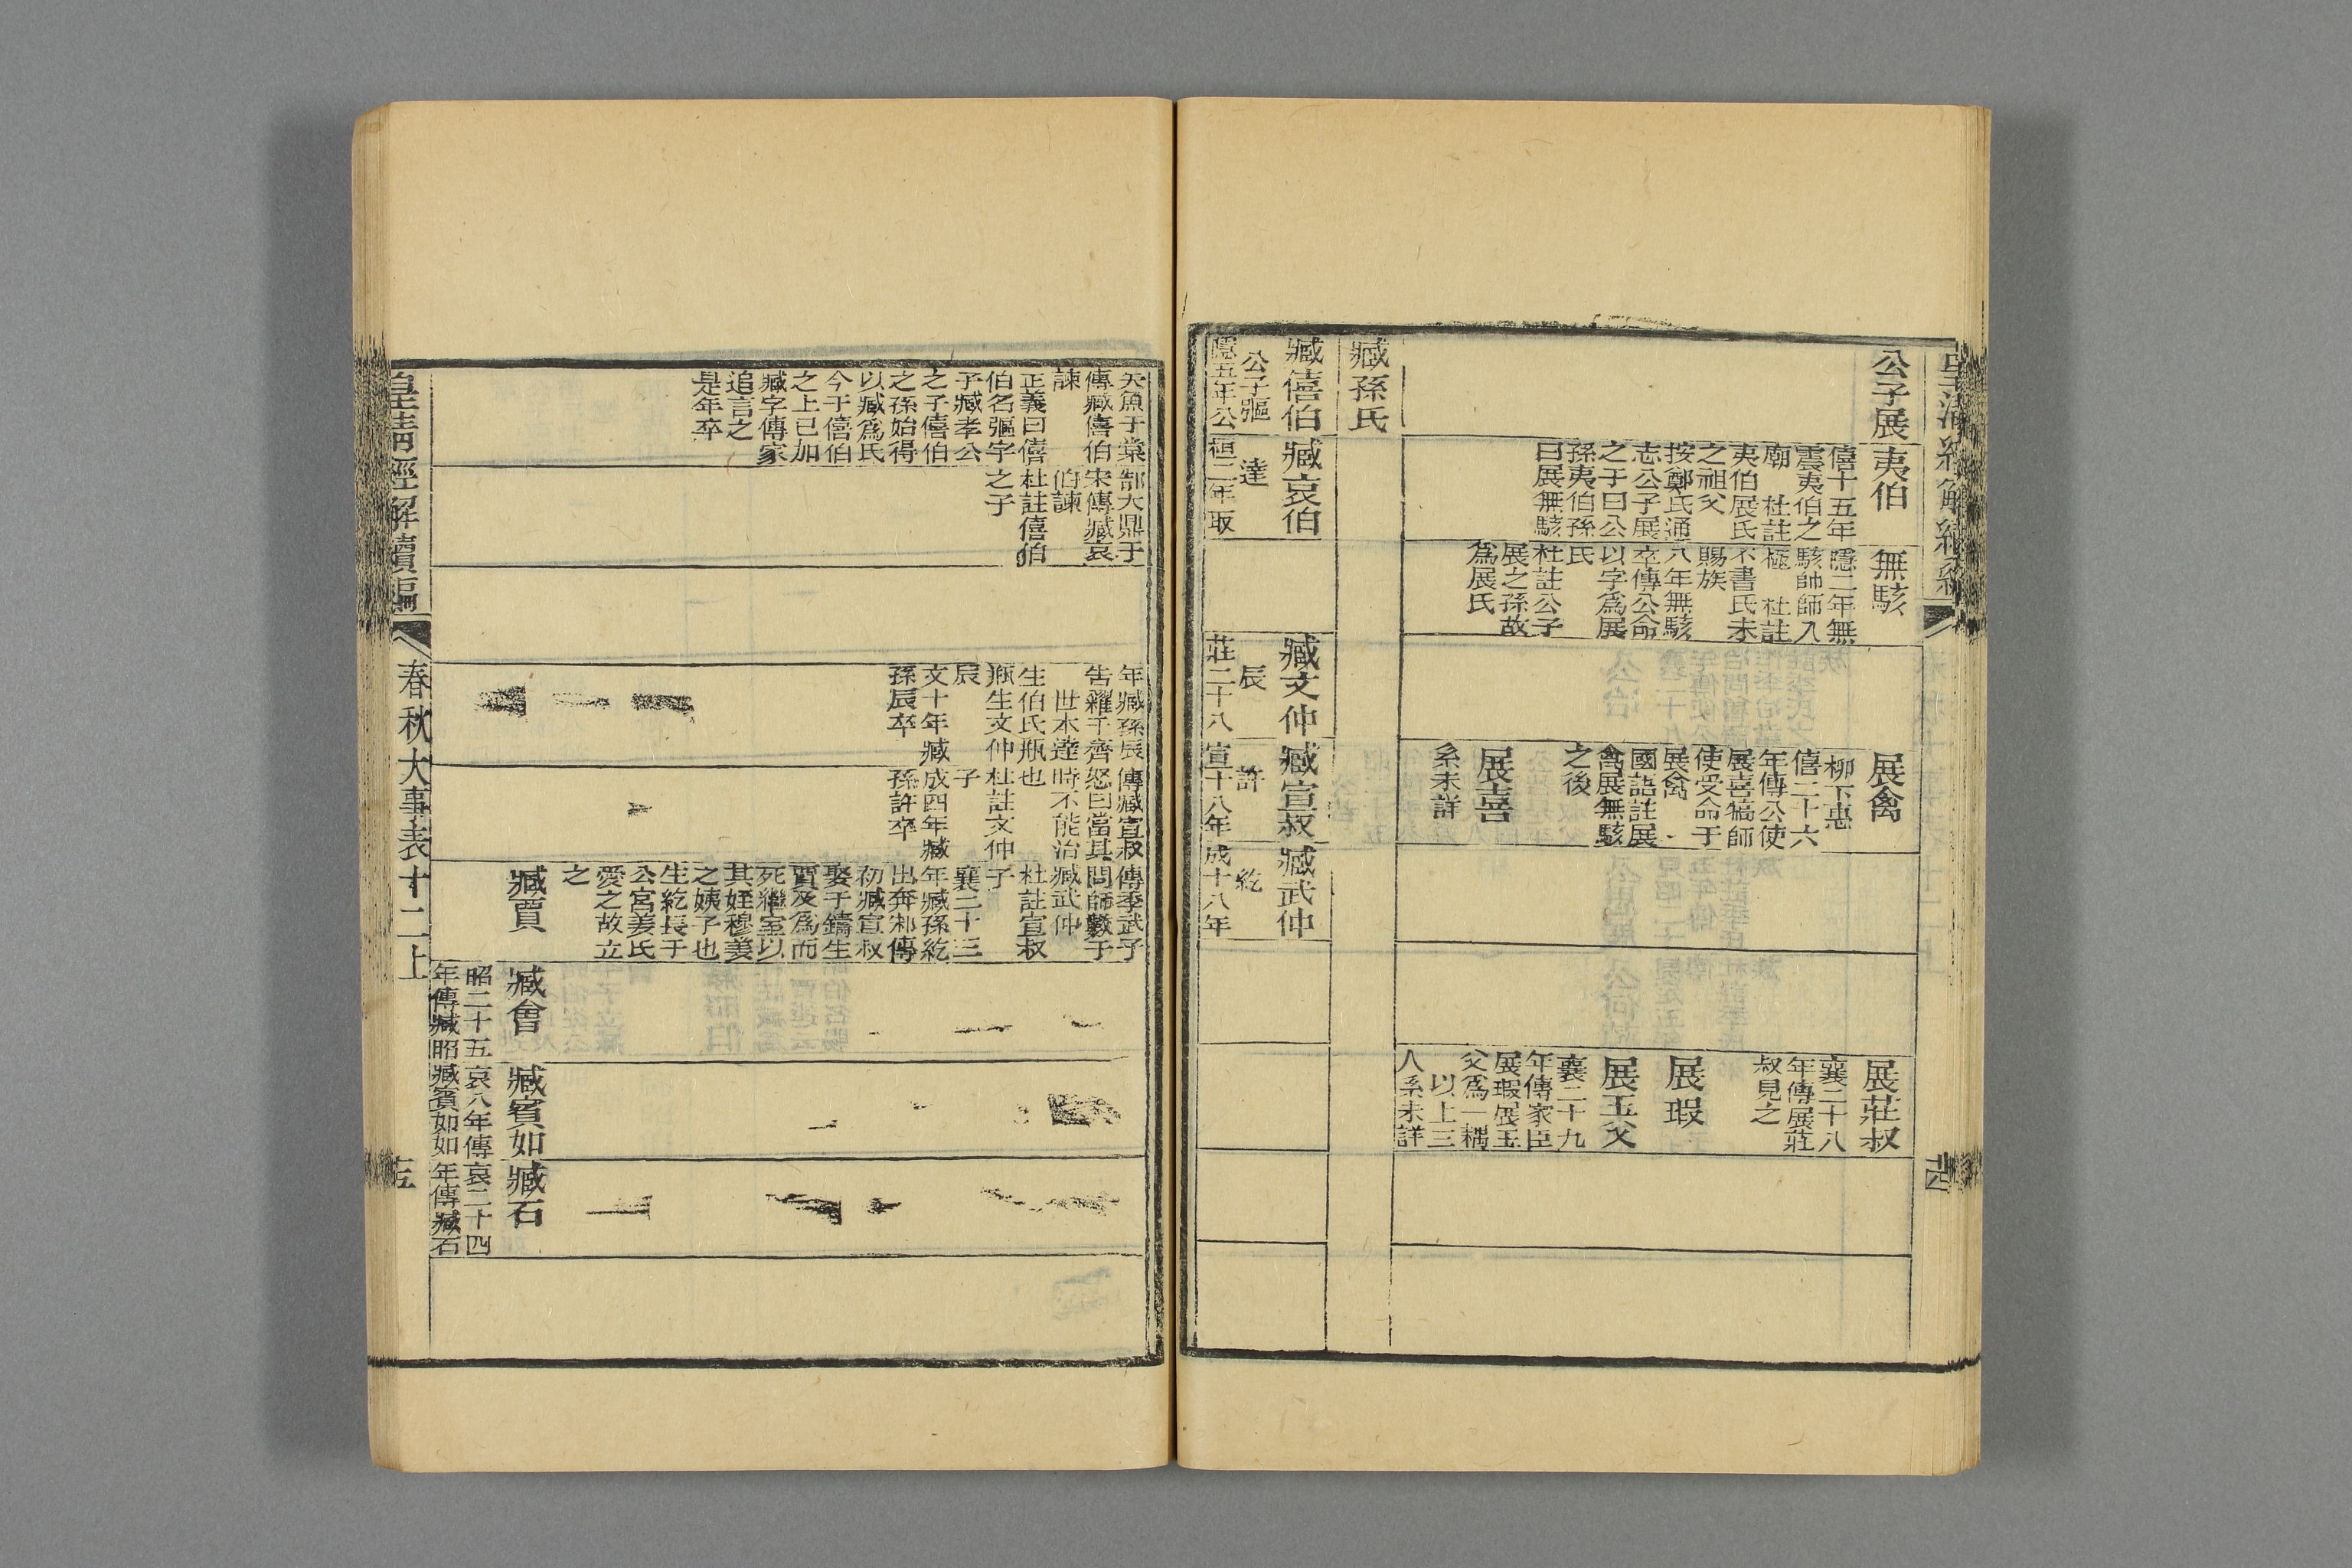 皇清經解續編
公子展
夷伯
僖十五年
震夷伯之
廟　杜註
夷伯展氏
之祖父
按鄭氏通
志公子展
之子曰公
孫夷伯孫
曰展無駭
無駭
隱二年無
駭帥師入
極　杜註
不書氏未
賜族
八年無駭
卒傳公命
以字爲展
氏
杜註公子
展之孫故
爲展氏
展禽
柳下惠
僖二十六
年傳公使
展喜犒師
使受命于
展禽
國語註展
禽展無駭
之後
展喜
系未詳
展莊叔
襄二十八
年傳展莊
叔見之
展瑕
展玉父
襄二十九
年傳家臣
展瑕展玉
父爲一耦
以上三
人系未詳
臧孫氏
臧僖伯
公子彄
隱五年公
臧哀伯
達
桓二年取
臧文仲
辰
莊二十八
臧宣叔
許
宣十八年
臧武仲
紇
成十八年
矢魚于棠
傳臧僖伯
諫
正義曰僖
伯名彄字
子臧孝公
之子僖伯
之孫始得
以臧爲氏
今于僖伯
之上已加
臧字傳家
追言之
是年卒
郜大鼎于
宋傳臧哀
伯諫
杜註僖伯
之子
年臧孫辰
告糴于齊
世本達
生伯氏瓶
瓶生文仲
辰
文十年臧
孫辰卒
傳臧宣叔
怒曰當其
時不能治
也
杜註文仲
子
成四年臧
孫許卒
傳季武子
問師數于
臧武仲
杜註宣叔
子
襄二十三
年臧孫紇
出奔邾傳
初臧宣叔
娶于鑄生
賈及爲而
死繼室以
其姪穆姜
之姨子也
生紇長于
公宮姜氏
愛之故立
之
臧賈
臧會
昭二十五
年傳臧昭
臧賓如
哀八年傳
臧賓如如
臧石
哀二十四
年傳臧石
皇清經解續編
春秋大事表十二上